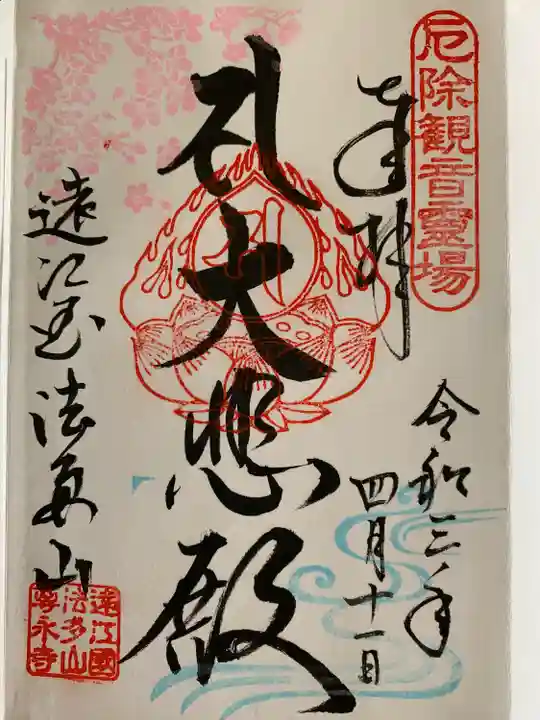 厄除観音霊場
奉拝
令和三年
四月十一日
大悲殿
遠江国法多山
遠江國
法多山
尊永寺